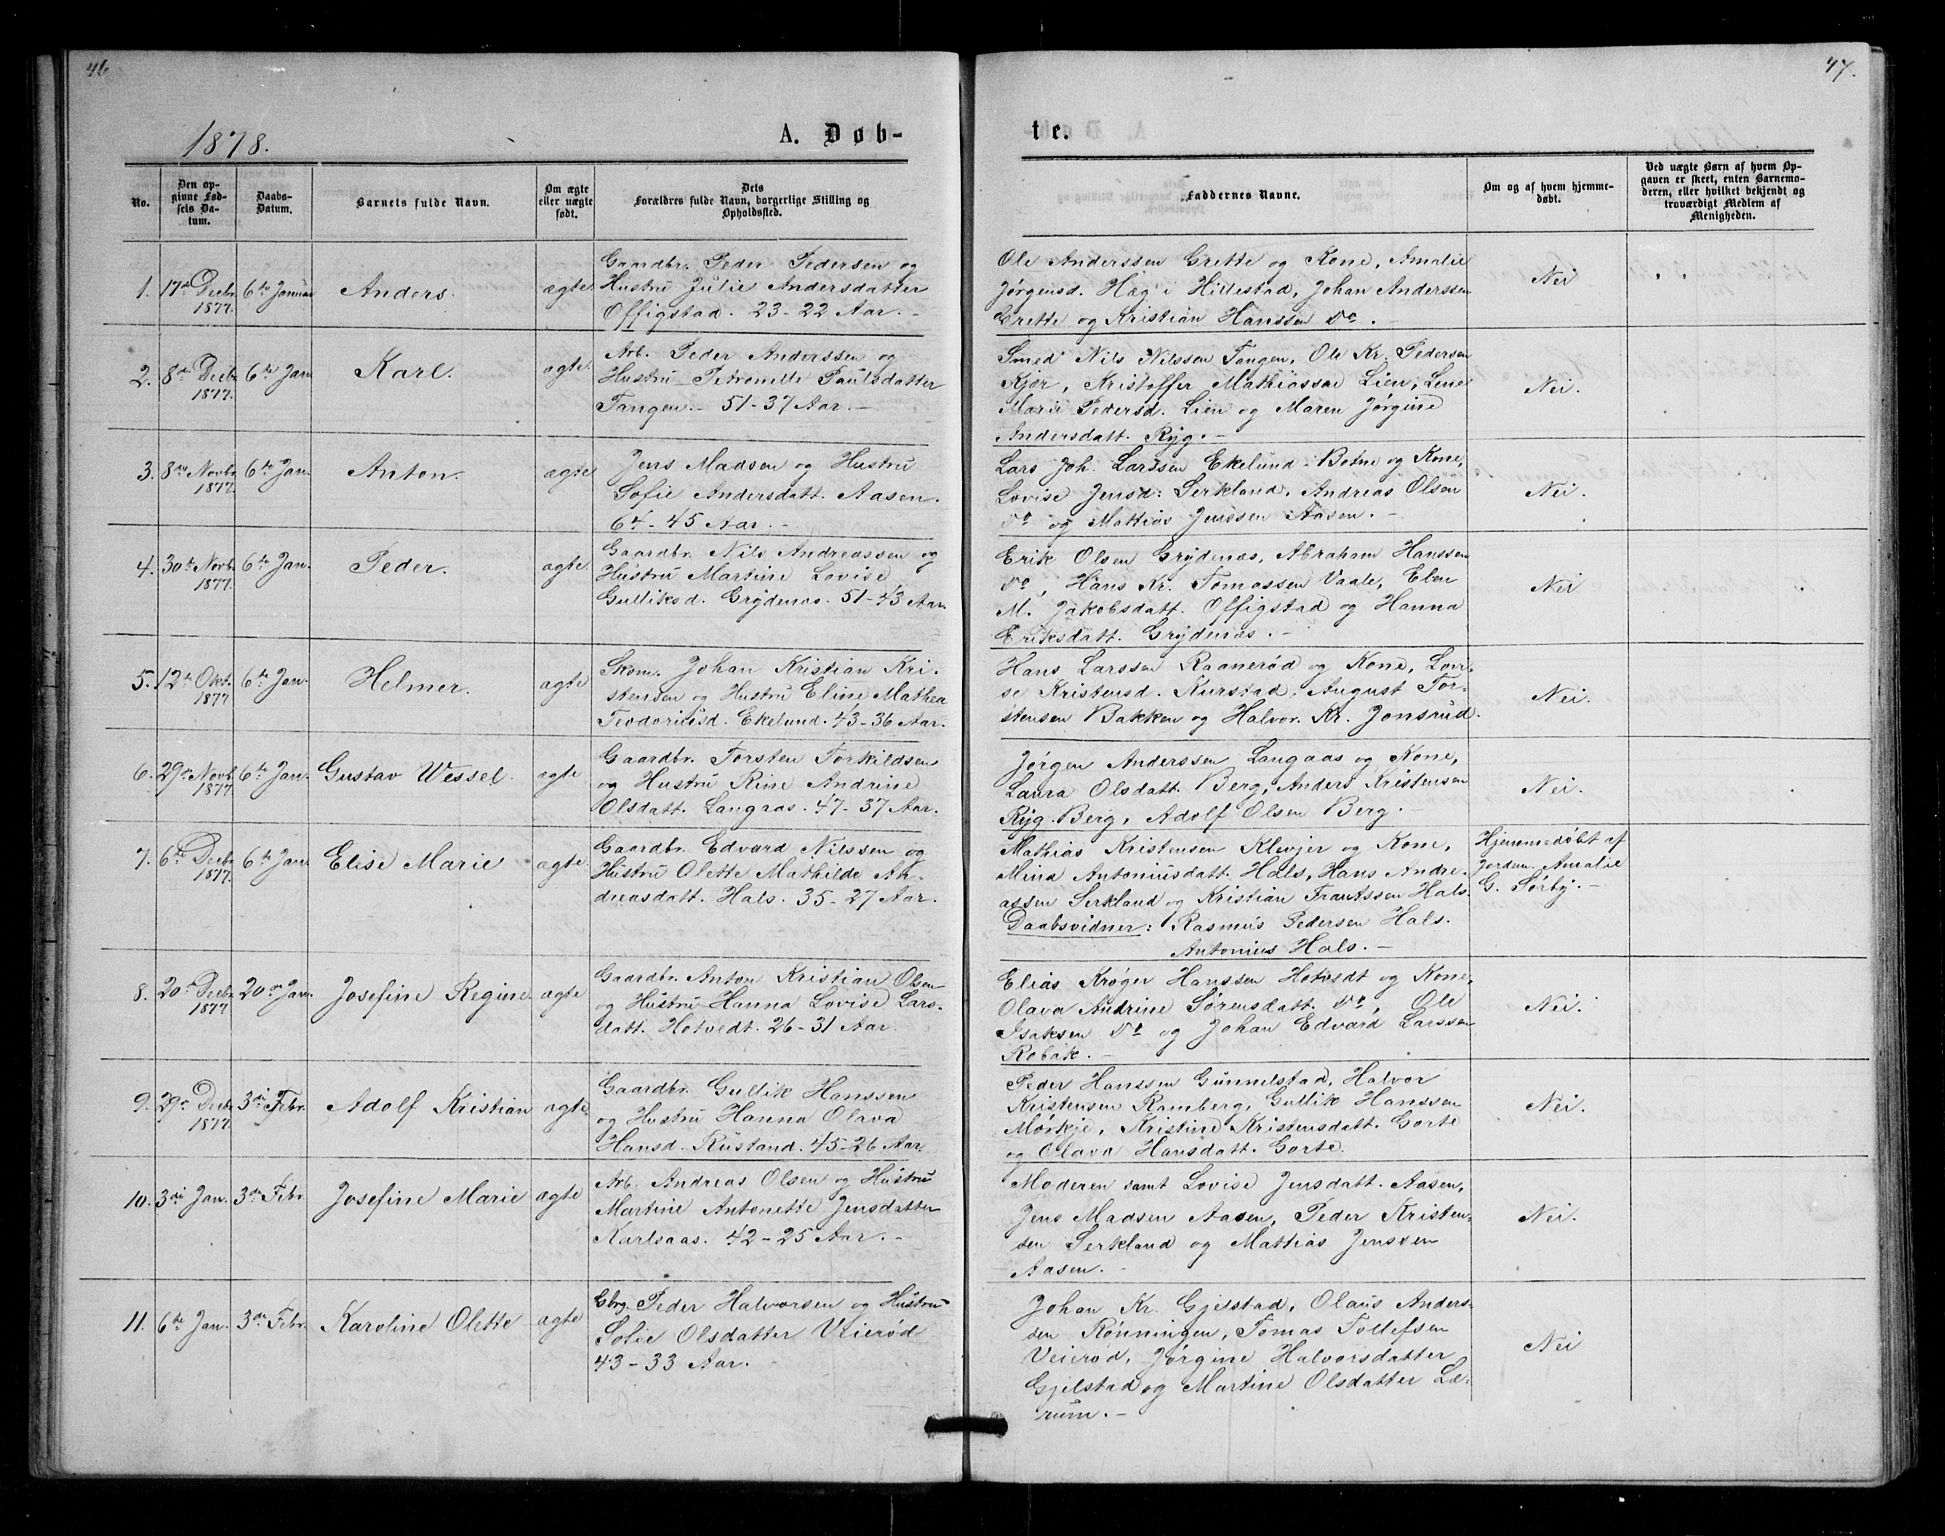 46
47.
1878.
A. Døb-
te.
No.
Den op-
givne Fød-
sels Da-
tum.
Daabs-
Datum.
Barnets fulde Navn.
Om ægte
eller uægte
født.
Dets
Forældres fulde Navn, borgerlige Stilling og
Opholdssted.
Faddernes Navne.
Om og af hvem hjemme-
døbt.
Ved uægte Børn af hvem Op-
gaven er skeet, enten Barnemo-
deren, eller hvilket bekjendt og
troværdigt Medlem af
Menigheden.
1. 17de Decbr. 1877. 6te Januar Anders. ægte
Gaardbr. Peder Pedersen og
Hustru Julie Andersdatter
Offigstad. 23-22 Aar.-
Ole Anderssen Grette og Kone, Amalie
Jørgensd. Hag i Hillestad, Johan Anderssen
Grette og Kristian Hanssen do.-
Nei
2. 8de Decbr. 1877. 6te Jan. Karl. ægte
Arb. Peder Anderssen og
Hustru Petronelle Paulsdatter
Tangen.- 51-37 Aar.-
Smed Nils Nilssen Tangen, Ole Kr. Pedersen
Kjør, Kristoffer Mathiassen Lien, Lene
Marie Pedersd. Lien og Maren Jørgine
Andersdatt. Ryg.-
Nei.
3. 8de Novbr. 1877. 6te Jan. Anton. ægte
Jens Madsen og Hustru
Sofie Andersdatt. Aasen.
64-45 Aar.-
Lars Joh. Larssen Ekelund i Botne og Kone,
Lovise Jensd: Serkland, Andreas Olsen
do og Mattias Jenssen Aasen.-
Nei.
4. 30te Novb. 1877. 6te Jan. Peder. ægte
Gaardbr. Nils Andreassen og
Hustru Martine Lovise
Gulliksd. Grydenæs. 51-43 Aar.
Erik Olsen Grydenæs, Abraham Hanssen
do, Hans Kr. Tomassen Vaale, Elen
M. Jakobsdatt. Offigstad og Hanna
Eriksdatt. Grydenæs.-
Nei
5. 12te Okt. 1877 6te Jan. Helmer. ægte
Skom. Johan Kristian Kri-
stensen og Hustru Eline Mathea
Teodoriusd. Ekelund. 43-36 Aar.
Hans Larssen Raanerød og Kone, Lovi-
se Kristensd. Kurstad, August Tor-
stensen Bakken og Halvor Kr. Jonsrud.
Nei.
6. 29de Novb. 1877 6te Jan. Gustav Wessel. ægte
Gaardbr. Torsten Torkildsen
og Hustru Rine Andrine
Olsdatt. Langaas. 47-37 Aar.
Jørgen Anderssen Langaas og Kone,
Laura Olsdatt. Berg, Anders Kristensen
Ryg-Berg, Adolf Olsen Berg.
Nei.
7. 6te Decbr. 1877. 6te Jan. Elise Marie ægte
Gaardbr. Edvard Nilssen og
Hustru Olette Mathilde An-
dreasdatt. Hals. 35-27 Aar.
Mathias Kristensen Klevjer og Kone,
Mina Antoniusdatt. Hals, Hans Andre-
assen Serkland og Kristian Frantssen Hals.
Daabsvidner: Rasmus Pedersen Hals.
Antonius Hals.-
Hjemmedøbt af
Jordem. Amalie
G. Sørby.-
8. 20de Decbr. 1877 20de Jan. Josefine Regine ægte
Gaardbr. Anton Kristian Olsen
og Hustru Hanna Lovise Lars-
datt. Hotvedt. 26-31 Aar.
Elias Krøger Hanssen Hotvedt og Kone,
Olava Andrine Sørensdatt. do, Ole
Isaksen do og Johan Edvard Larssen
Robak.-
Nei.
9. 29de Decbr. 1877. 3die Febr. Adolf Kristian ægte
Gaardbr. Gullik Hanssen
og Hustru Hanna Olava
Hansd. Rustand. 45-26 Aar.
Peder Hanssen Gunnelstad, Halvor
Kristensen Ramberg, Gullik Hanssen
Mørkje, Kristine Kristensdatt. Gorte
og Olava Hansdatt. Gorte.
Nei.
10. 3die Jan. 3die Febr. Josefine Marie ægte
Arb. Andreas Olsen og Hustru
Martine Antonette Jensdatter
Karlsaas. 42-25 Aar.-
Moderen samt Lovise Jensdatt. Aasen,
Jens Madsen Aasen, Peder Kristen-
sen Serkland og Mattias Jenssen
Aasen.-
Nei.
11. 6te Jan. 3die Febr. Karoline Olette ægte
Gbrg. Peder Halvorsen og Hustru
Sofie Olsdatter Veierød
43-33 Aar.-
Johan Kr. Gjelstad, Olaus Anders-
sen Rønningen, Tomas Tollefsen
Veierød, Jørgine Halvorsdatter
Gjelstad og Martine Olsdatter Læ-
rum.-
Nei